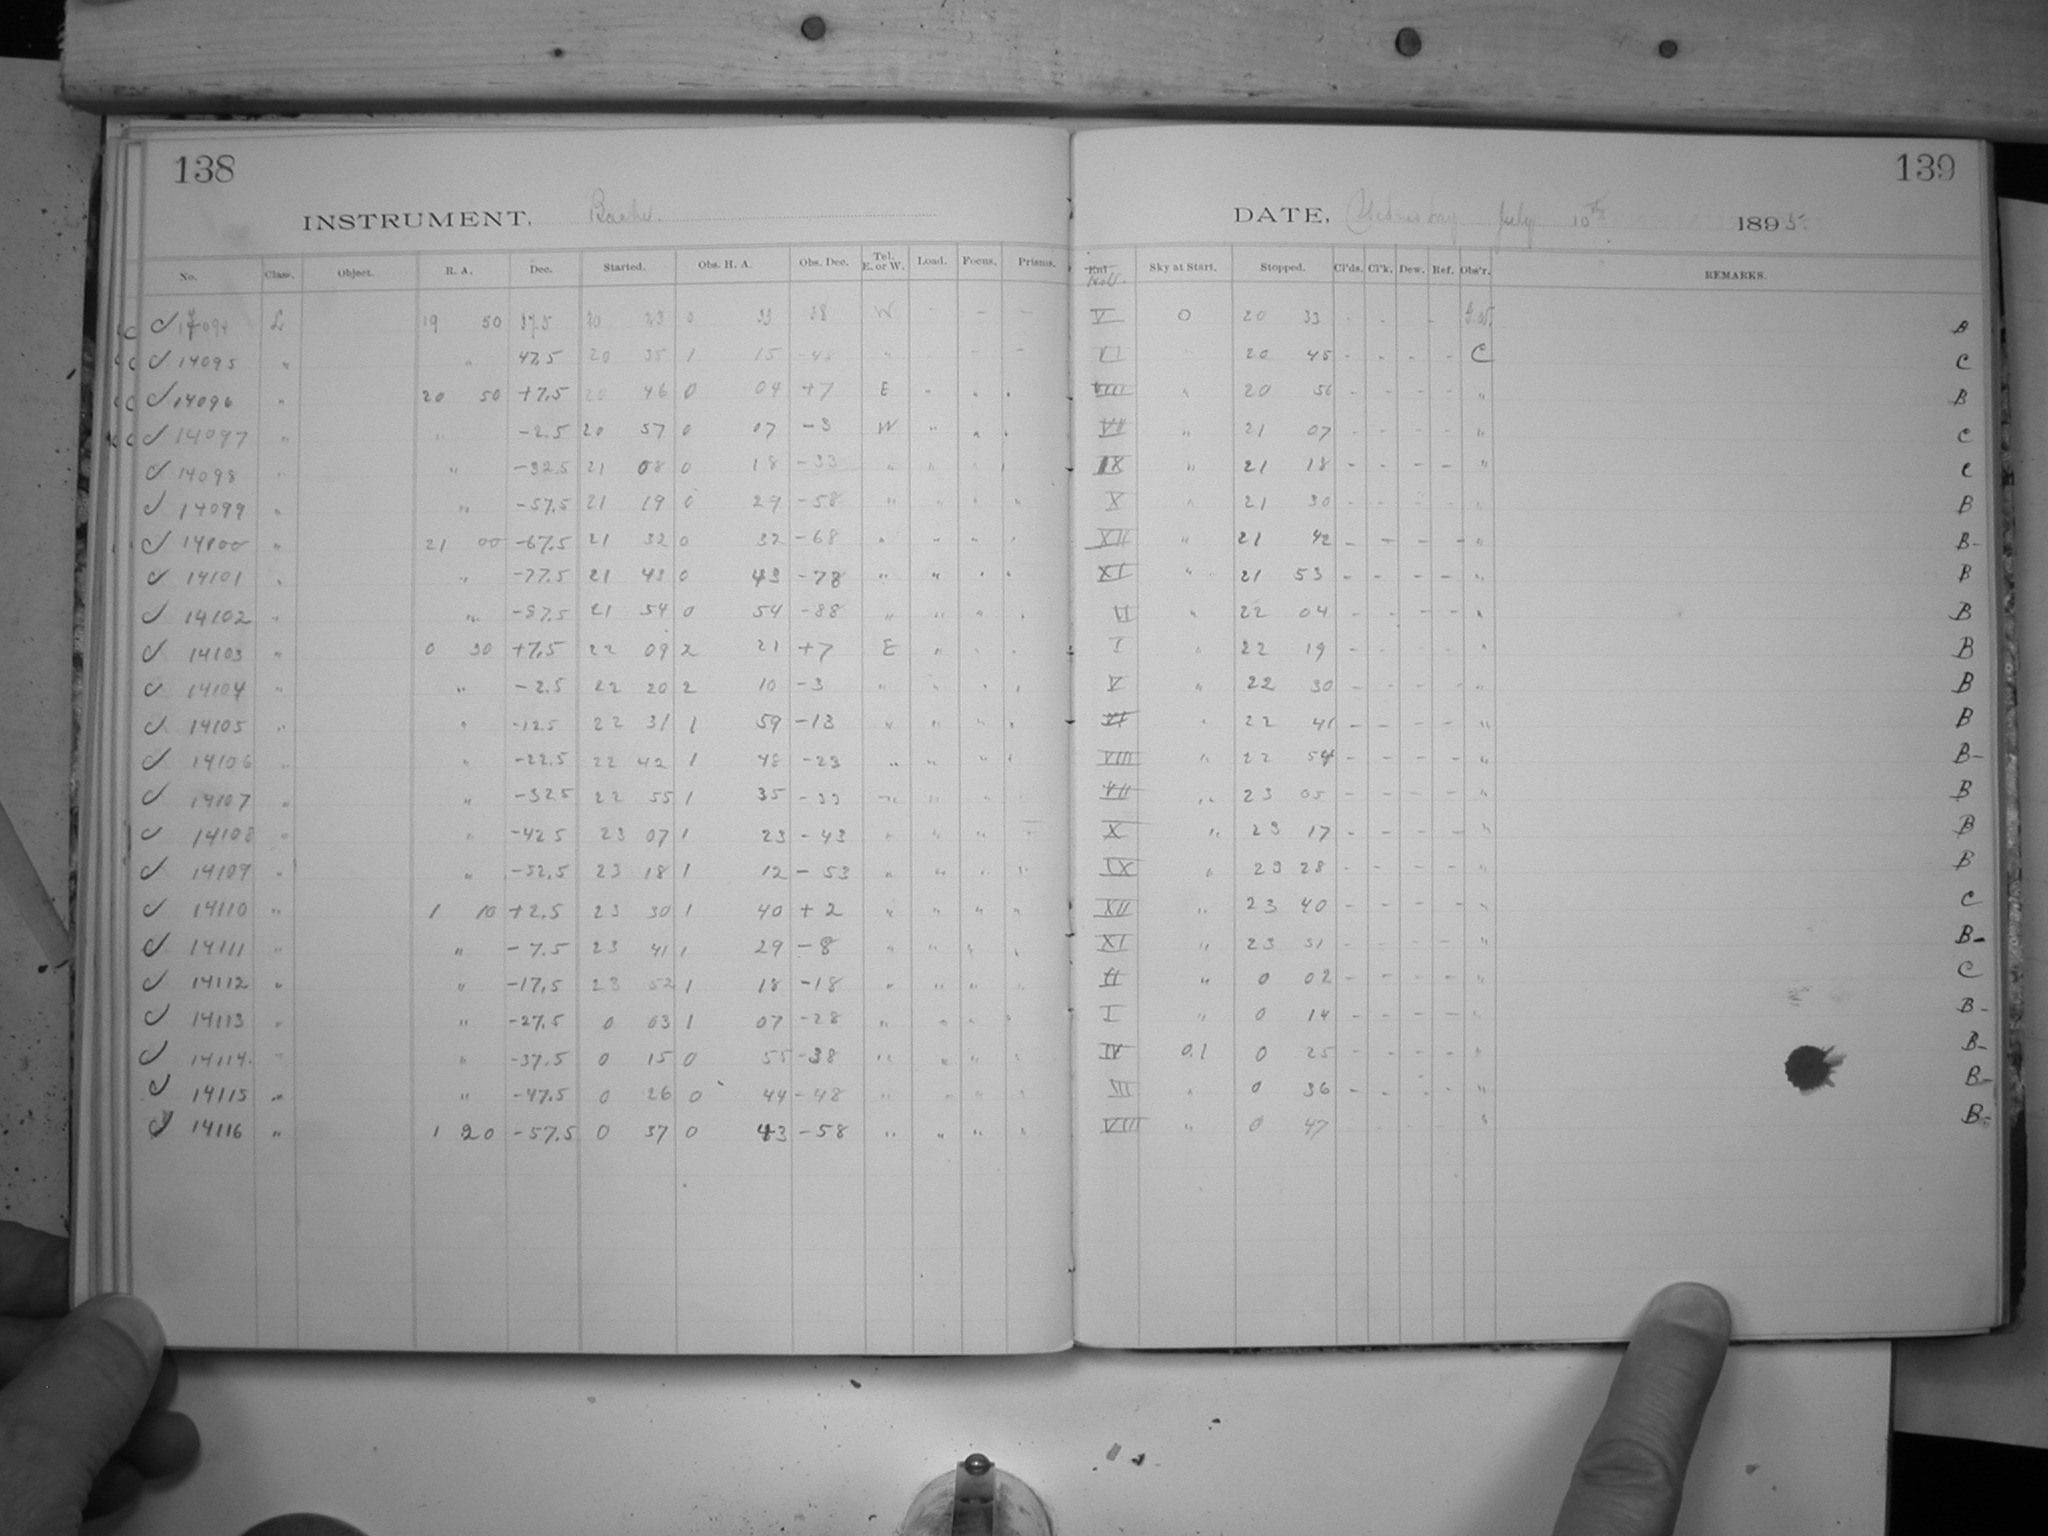 138
139
INSTRUMENT, Bache.
DATE, Wednesday July 10th 1895.
No. Class. Object. R. A. Dec. Started. Obs. H. A. Obs. Dec. Tel. E. or W. Load. Focus. Prisms. Sky at Start. Stopped. Cl'ds. Cl'k. Dew. Ref. Obs'r. REMARKS.
14094 L 19 50 37.5 20 23 0 33 38 W - - - V 0 20 33 - - - B
14095 " " 47.5 20 35 1 15 -48 " - - VI " 20 45 - - - - C C
14096 " 20 50 +7.5 20 46 0 04 +7 E " " " VIII " 20 56 - - - - " B
14097 " " -2.5 20 57 0 07 -3 W " " " VII " 21 07 - - - - " C
14098 " " -32.5 21 08 0 18 -33 " " " " IX " 21 18 - - - - " C
14099 " " -57.5 21 19 0 29 -58 " " " " X " 21 30 - - - - " B
14100 " 21 00 -67.5 21 32 0 32 -68 " " " " XII " 21 42 - - - - " B-
14101 " " -77.5 21 43 0 43 -78 " " " " XI " 21 53 - - - - " B
14102 " " -87.5 21 54 0 54 -88 " " " " " 22 04 - - - - " B
14103 " 0 30 +7.5 22 09 2 21 +7 E " " " I " 22 19 - - - - " B
14104 " " -2.5 22 20 2 10 -3 " " " " V " 22 30 - - - - " B
14105 " " -12.5 22 31 1 59 -13 " " " " VI " 22 41 - - - - " B
14106 " " -22.5 22 42 1 48 -23 " " " " VIII " 22 54 - - - - " B-
14107 " " -32.5 22 55 1 35 -33 " " " " VII " 23 05 - - - - " B
14108 " " -42.5 23 07 1 23 -43 " " " " X " 23 17 - - - - " B
14109 " " -52.5 23 18 1 12 -53 " " " " IX " 23 28 - - - - " B
14110 " 1 10 +2.5 23 30 1 40 +2 " " " " XII " 23 40 - - - - " C
14111 " " -7.5 23 41 1 29 -8 " " " " XI " 23 51 - - - - " B-
14112 " " -17.5 23 52 1 18 -18 " " " " II " 0 02 - - - - " C
14113 " " -27.5 0 03 1 07 -28 " " " " I " 0 14 - - - - " B-
14114 " " -37.5 0 15 0 55 -38 " " " " IV 0.1 0 25 - - - - " B-
14115 " " -47.5 0 26 0 44 -48 " " " " III " 0 36 - - - - " B-
14116 " 1 20 -57.5 0 37 0 43 -58 " " " " VIII " 0 47 - - - - " B-